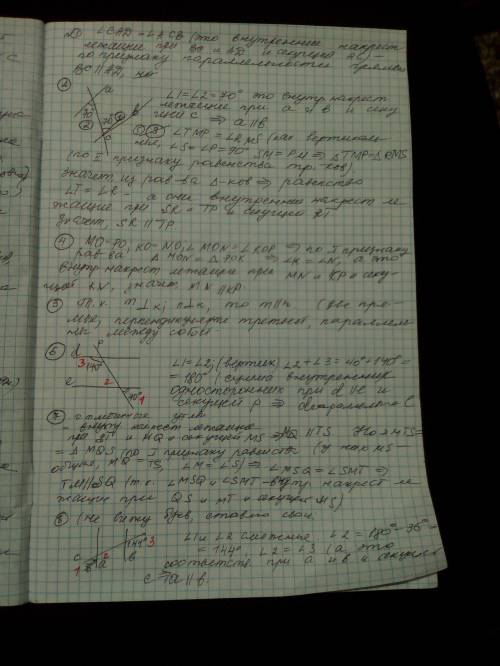 1) ∠CAD = ∠ACB (это внутренние накрест
лежащие при BC и AD и секущей AC) =
по признаку параллельности прямых
BC∥AD, но
2
a
70°
2
70°
b
c
∠1=∠2=70° это внутр накрест
лежащие при a и b и секу
щей c ⇒ a∥b
3 ∠TMP=∠RMS (как вертикаль
ные, ∠S=∠P=90° SM=PM ⇒ ΔTMP=ΔRMS
(по II признаку равенства тр-ков)
значит из рав-ва Δ-ков ⇒ равенство
∠T=∠R - а они внутренние накрест ле
жащие при SR и TP и секущей RT
значит, SR∥TP
4 MO=PO, KO=NO, ∠MON=∠KOP ⇒ по I признаку
рав-ва ΔMON=ΔPOK ⇒ ∠K=∠N, а это
внутр накрест лежащие при MN и KP и секу-
щей KN, значит MN∥KP.
5 Т.к. m⊥k; n⊥k, то m∥n (две пря-
мые, перпендикуляр третьей, параллель
ны между собой
6
p
d
3 140°
e 2
40° 1
∠1=∠2; (вертик) ∠2+∠3=40°+140°=
=180° (сумма внутренних
односторонних при d и e и
секущей p ⇒
7
отмеченные углы
= внутр накрест лежащие
при ST и MQ и секущей MS ⇒ MQ∥TS
= ΔMQS (по I признаку равенства (у них MS -
общие, MQ=TS, ∠M=∠S) ⇒ ∠MSQ=∠SMT ⇒
TM∥SQ (т.к. ∠MSQ и ∠SMT - внутр накрест ле
жащие при QS и MT и секущей MS)
8 (не вижу букв, ставлю свои
c
1
2
a
144° 3
b
∠1 и ∠2 смежные, ∠2=180°-36°=
=144°, ∠2=∠3 (а это
соответств. при a и b и секущей
c ⇒ a∥b.